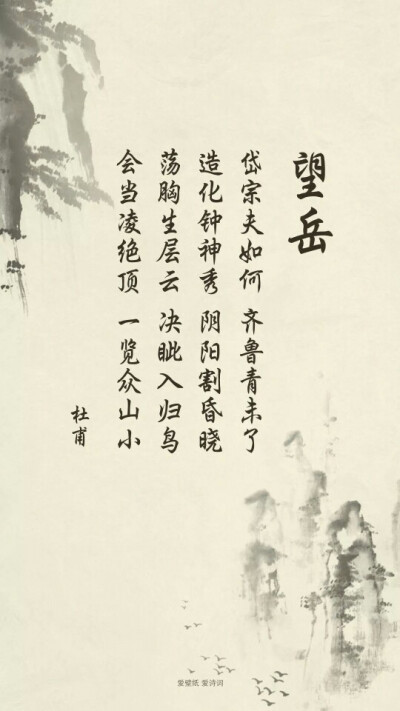 望岳
岱宗夫如何 齐鲁青未了
造化钟神秀 阴阳割昏晓
荡胸生层云 决眦入归鸟
会当凌绝顶 一览众山小
杜甫
爱壁纸 爱诗词